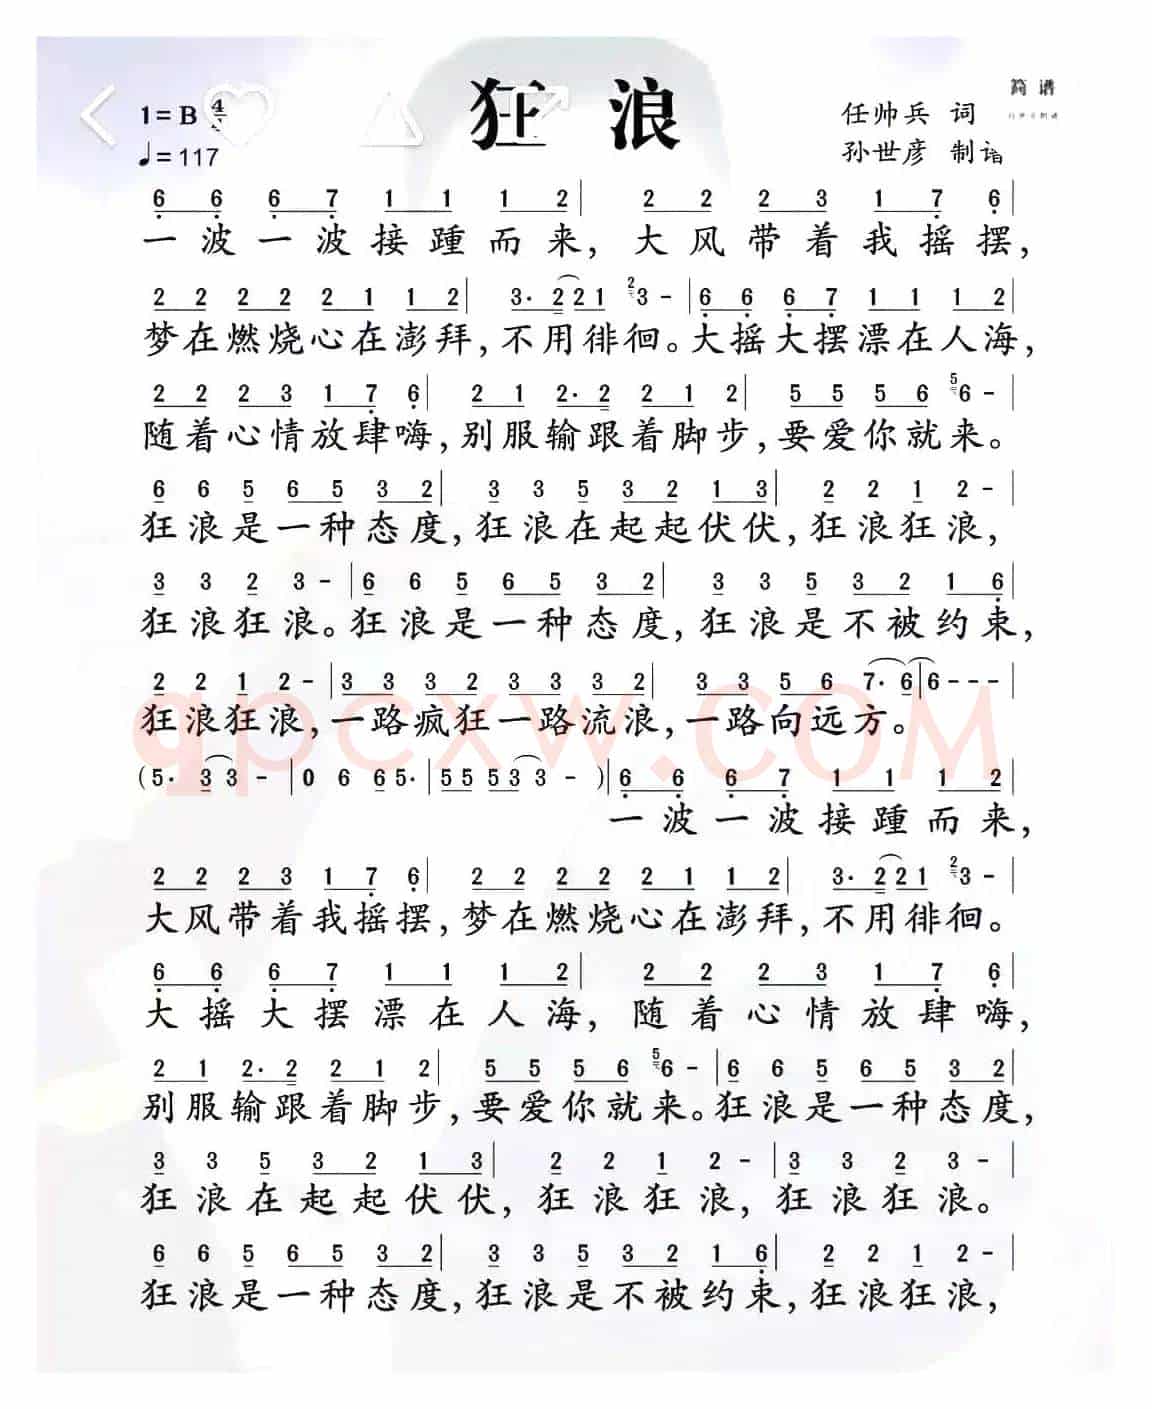 狂浪
简谱
1=B 4/4
任帅兵 词
♩=117
孙世彦 制谱
6 6 6 7 1 1 1 2 | 2 2 2 3 1 7 6 |
一波一波接踵而来,大风带着我摇摆,
2 2 2 2 2 1 1 2 | 3· 2 2 1 2 3 - | 6 6 6 7 1 1 1 2 |
梦在燃烧心在澎拜,不用徘徊。大摇大摆漂在人海,
2 2 2 3 1 7 6 | 2 1 2· 2 2 1 2 | 5 5 5 6 5 6 - |
随着心情放肆嗨,别服输跟着脚步,要爱你就来。
6 6 5 6 5 3 2 | 3 3 5 3 2 1 3 | 2 2 1 2 - |
狂浪是一种态度,狂浪在起起伏伏,狂浪狂浪,
3 3 2 3 - | 6 6 5 6 5 3 2 | 3 3 5 3 2 1 6 |
狂浪狂浪。狂浪是一种态度,狂浪是不被约束,
2 2 1 2 - | 3 3 3 2 3 3 3 2 | 3 3 5 6 7· 6 | 6 - - - |
狂浪狂浪,一路疯狂一路流浪,一路向远方。
( 5· 3 3 - | 0 6 6 5· | 5 5 5 3 3 - ) | 6 6 6 7 1 1 1 2 |
一波一波接踵而来,
2 2 2 3 1 7 6 | 2 2 2 2 2 1 1 2 | 3· 2 2 1 2 3 - |
大风带着我摇摆,梦在燃烧心在澎拜,不用徘徊。
6 6 6 7 1 1 1 2 | 2 2 2 3 1 7 6 |
大摇大摆漂在人海,随着心情放肆嗨,
2 1 2· 2 2 1 2 | 5 5 5 6 5 6 - | 6 6 5 6 5 3 2 |
别服输跟着脚步,要爱你就来。狂浪是一种态度,
3 3 5 3 2 1 3 | 2 2 1 2 - | 3 3 2 3 - |
狂浪在起起伏伏,狂浪狂浪,狂浪狂浪。
6 6 5 6 5 3 2 | 3 3 5 3 2 1 6 | 2 2 1 2 - |
狂浪是一种态度,狂浪是不被约束,狂浪狂浪,
qpcxw.COM